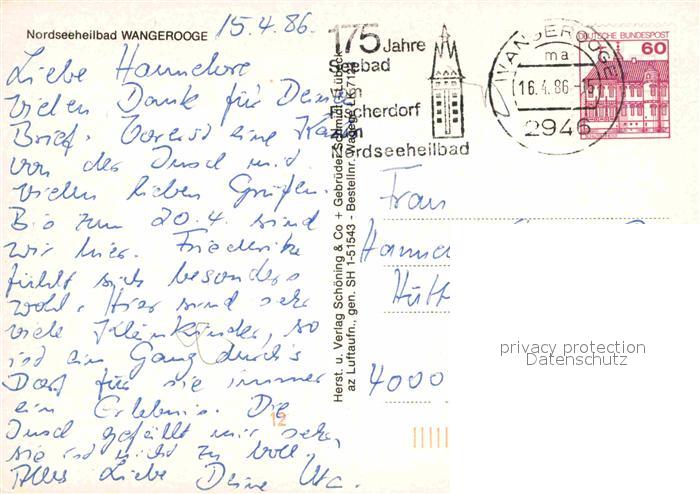 Nordseeheilbad WANGEROOGE
15.4.86.
Liebe Hannelore
vielen Dank für Deinen
Brief. Vorerst eine Karte
von der Insel mit
vielen lieben Grüßen.
Bis zum 20.4. sind
wir hier. Friederike
fühlt sich besonders
wohl. Hier sind sehr
viele Kleinkinder, so
ist ein Gang durch's
Dorf für sie immer
ein Erlebnis. Die
Insel gefällt mir sehr,
sie ist nicht zu voll.
Alles Liebe Deine Uta.
12
Herst. u. Verlag Schöning & Co + Gebrüder Schmidt, Lübeck
az Luftaufn., gen. SH 1-51543 - Bestellnr. Wagege LK 7124
175 Jahre
Seebad
Fischerdorf
Nordseeheilbad
WANGEROOGE
ma
16.4.86-15
2946
DEUTSCHE BUNDESPOST
60
Frau
Hannel
Hütt
4000
privacy protection
Datenschutz